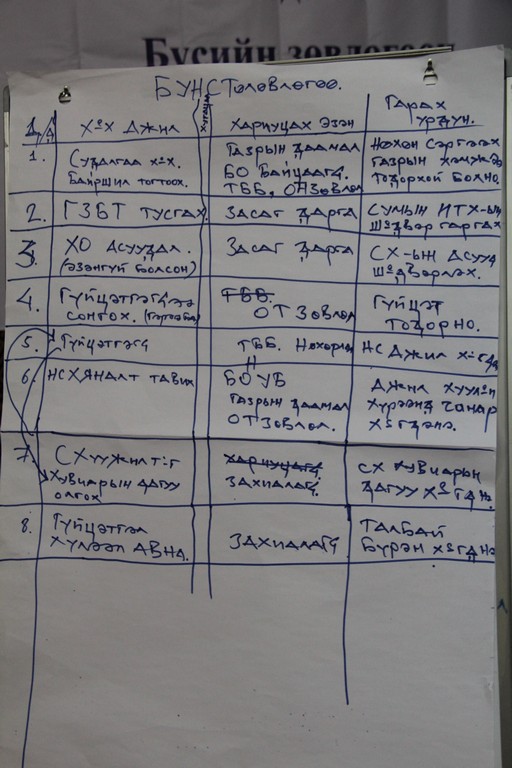 Бүсийн зөвлөгөөн
БУНСТөлөвлөгөө.
Д/Д Х=х Джил Хугацаа Хариуцах Эзэн Гарах үрдүн.
1. Судалгаа х=х. Байршил тогтоох.
Газрын даамал БО Байцааг. ТББ, ОТЗөвлөл
Нөхөн сэргээх газрын хэмжээ Тодорхой Болно.
2. ГЗБТ тусгах Засаг дарга Сумын ИТХ-ын ш=двэр гаргах
3. ХО асуудал. (эзэнгүй болсон) Засаг дарга СХ-ын Асууд ш=двэрлэх.
4. Гүйцэтгэгчээ сонгох.
ОТ Зөвлөл
Гүйцэт Тодорно.
5. Гүйцэтгэгч ТББ. Нөхөрлөл НС Джил х=гд
6. НС ХЯНАЛТ тавих
БОУБ
Газрын даамал
ОТЗөвлөл.
Джил хууль
хүрээнд чанар
х=гдэнэ.
7. СХүүжилт=г
Хувиарын дагуу
олгох
Захиалагч
СХ хувиарын
дагуу х=гднө
8. Гүйцэтгэл
хүлээл авна.
Захиалагч
Талбай
Бүрэн х=гднө